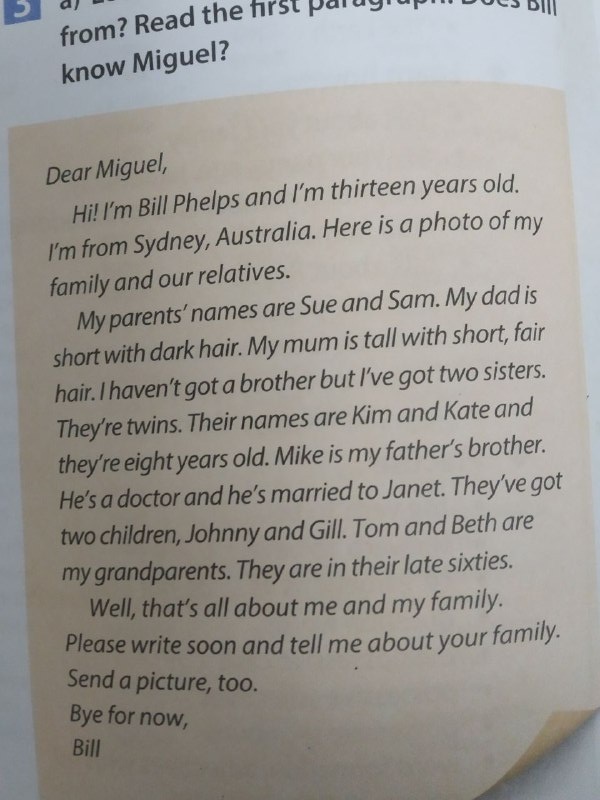 3 a)
from? Read the first paragraph. Does Bill
know Miguel?
Dear Miguel,
Hi! I'm Bill Phelps and I'm thirteen years old.
I'm from Sydney, Australia. Here is a photo of my
family and our relatives.
My parents' names are Sue and Sam. My dad is
short with dark hair. My mum is tall with short, fair
hair. I haven't got a brother but I've got two sisters.
They're twins. Their names are Kim and Kate and
they're eight years old. Mike is my father's brother.
He's a doctor and he's married to Janet. They've got
two children, Johnny and Gill. Tom and Beth are
my grandparents. They are in their late sixties.
Well, that's all about me and my family.
Please write soon and tell me about your family.
Send a picture, too.
Bye for now,
Bill